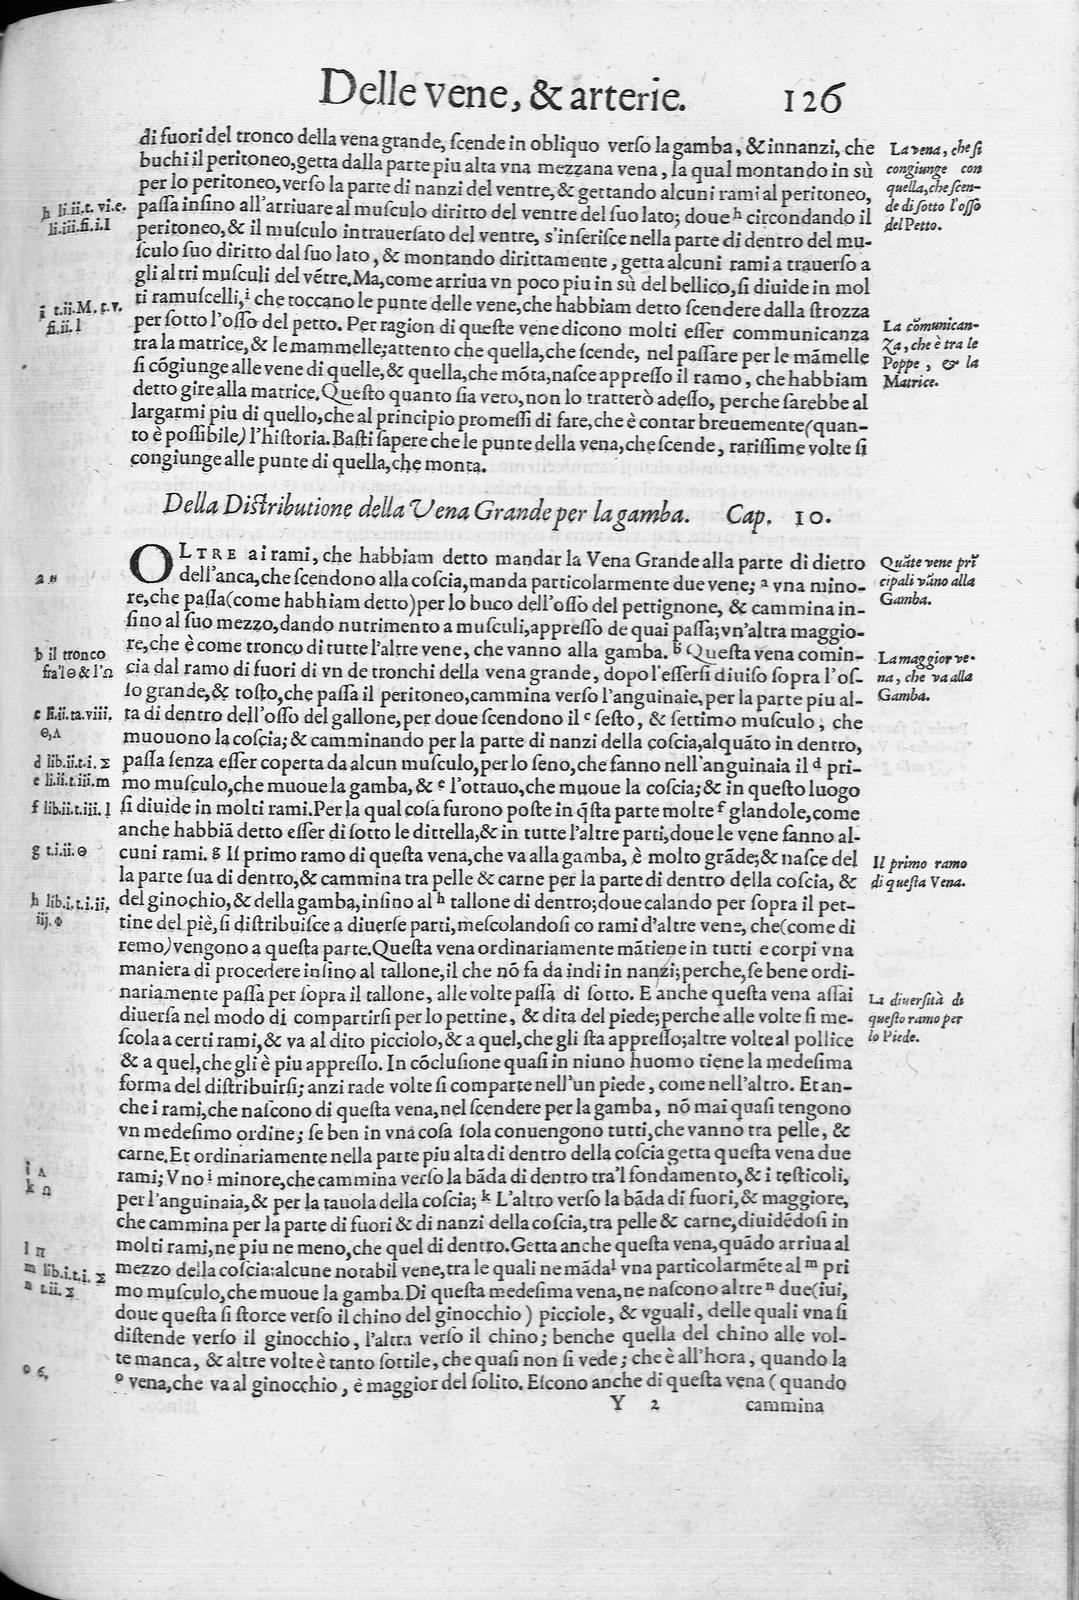 Delle vene, & arterie. 126
di fuori del tronco della vena grande, ſcende in obliquo verſo la gamba, & innanzi, che
buchi il peritoneo, getta dalla parte piu alta vna mezzana vena, la qual montando in sù
per lo peritoneo, verſo la parte di nanzi del ventre, & gettando alcuni rami al peritoneo,
paſſa inſino all'arriuare al muſculo diritto del ventre del ſuo lato; doue h circondando il
peritoneo, & il muſculo intrauerſato del ventre, s'inſeriſce nella parte di dentro del mu-
ſculo ſuo diritto dal ſuo lato, & montando dirittamente, getta alcuni rami a trauerſo a
gli altri muſculi del vẽtre. Ma, come arriua vn poco piu in sù del bellico, ſi diuide in mol
ti ramuſcelli, i che toccano le punte delle vene, che habbiam detto ſcendere dalla ſtrozza
per ſotto l'oſſo del petto. Per ragion di queſte vene dicono molti eſſer communicanza
tra la matrice, & le mammelle; attento che quella, che ſcende, nel paſſare per le mãmelle
ſi cõgiunge alle vene di quelle, & quella, che mõta, naſce appreſſo il ramo, che habbiam
detto gire alla matrice. Queſto quanto ſia vero, non lo tratterò adeſſo, perche ſarebbe al
largarmi piu di quello, che al principio promeſſi di fare, che è contar breuemente (quan-
to è poſſibile) l'hiſtoria. Baſti ſapere che le punte della vena, che ſcende, rariſſime volte ſi
congiunge alle punte di quella, che monta.
La vena, che ſi
congiunge con
quella, che ſcen-
de di ſotto l'oſſo
del Petto.
h li.ii.t. vi.e.
li.iii.fi.i.I
i t.ii.M. t.v.
fi.ii.l
La cõmunican-
za, che è tra le
Poppe, & la
Matrice.
Della Diſtributione della Vena Grande per la gamba. Cap. 10.
OLTRE a i rami, che habbiam detto mandar la Vena Grande alla parte di dietro
dell'anca, che ſcendono alla coſcia, manda particolarmente due vene; a vna mino-
re, che paſſa (come habbiam detto) per lo buco dell'oſſo del pettignone, & cammina in-
ſino al ſuo mezzo, dando nutrimento a muſculi, appreſſo de quai paſſa; vn'altra maggio-
re, che è come tronco di tutte l'altre vene, che vanno alla gamba. b Queſta vena comin-
cia dal ramo di fuori di vn de tronchi della vena grande, dopo l'eſſerſi diuiſo ſopra l'oſ-
ſo grande, & toſto, che paſſa il peritoneo, cammina verſo l'anguinaie, per la parte piu al-
ta di dentro dell'oſſo del gallone, per doue ſcendono il c ſeſto, & ſettimo muſculo, che
muouono la coſcia; & camminando per la parte di nanzi della coſcia, alquãto in dentro,
paſſa ſenza eſſer coperta da alcun muſculo, per lo ſeno, che fanno nell'anguinaia il d pri-
mo muſculo, che muoue la gamba, & e l'ottauo, che muoue la coſcia; & in queſto luogo
ſi diuide in molti rami. Per la qual coſa furono poſte in q̃ſta parte molte f glandole, come
anche habbiã detto eſſer di ſotto le dittella, & in tutte l'altre parti, doue le vene fanno al-
cuni rami. g Il primo ramo di queſta vena, che va alla gamba, è molto grãde; & naſce del
la parte ſua di dentro, & cammina tra pelle & carne per la parte di dentro della coſcia, &
del ginochio, & della gamba, inſino al h tallone di dentro; doue calando per ſopra il pet-
tine del piè, ſi diſtribuiſce a diuerſe parti, meſcolandoſi co rami d'altre vene, che (come di
remo) vengono a queſta parte. Queſta vena ordinariamente mãtiene in tutti e corpi vna
maniera di procedere inſino al tallone, il che nõ fa da indi in nanzi; perche, ſe bene ordi-
nariamente paſſa per ſopra il tallone, alle volte paſſa di ſotto. E anche queſta vena aſſai
diuerſa nel modo di compartirſi per lo pettine, & dita del piede; perche alle volte ſi me-
ſcola a certi rami, & va al dito picciolo, & a quel, che gli ſta appreſſo; altre volte al pollice
& a quel, che gli è piu appreſſo. In cõcluſione quaſi in niuno huomo tiene la medeſima
forma del diſtribuirſi; anzi rade volte ſi comparte nell'un piede, come nell'altro. Et an-
che i rami, che naſcono di queſta vena, nel ſcendere per la gamba, nõ mai quaſi tengono
vn medeſimo ordine; ſe ben in vna coſa ſola conuengono tutti, che vanno tra pelle, &
carne. Et ordinariamente nella parte piu alta di dentro della coſcia getta queſta vena due
rami; Vno i minore, che cammina verſo la bãda di dentro tra'l fondamento, & i teſticoli,
per l'anguinaia, & per la tauola della coſcia; k L'altro verſo la bãda di fuori, & maggiore,
che cammina per la parte di fuori & di nanzi della coſcia, tra pelle & carne, diuidẽdoſi in
molti rami, ne piu ne meno, che quel di dentro. Getta anche queſta vena, quãdo arriua al
mezzo della coſcia: alcune notabil vene, tra le quali ne mãda l vna particolarmẽte al m pri
mo muſculo, che muoue la gamba. Di queſta medeſima vena, ne naſcono altre n due (iui,
doue queſta ſi ſtorce verſo il chino del ginocchio) picciole, & vguali, delle quali vna ſi
diſtende verſo il ginocchio, l'altra verſo il chino; benche quella del chino alle vol-
te manca, & altre volte è tanto ſottile, che quaſi non ſi vede; che è all'hora, quando la
o vena, che va al ginocchio, è maggior del ſolito. Eſcono anche di queſta vena (quando
Y 2 cammina
Quãte vene prĩ
cipali vãno alla
Gamba.
b il tronco
fra'l Θ & l'Ω
La maggior ve-
na, che va alla
Gamba.
c li.ii.ta.viii.
Θ,Λ
d lib.ii.t.i. Σ
e li.ii.t.iii.m
f lib.ii.t.iii. l
g t.i.ii. Θ
Il primo ramo
di queſta Vena.
h lib.i.t.i.ii.
iij. Φ
La diuerſità di
queſto ramo per
lo Piede.
i Λ
k Ω
l Π
m lib.i.t.i. Σ
n t.ii. Σ
o 6.